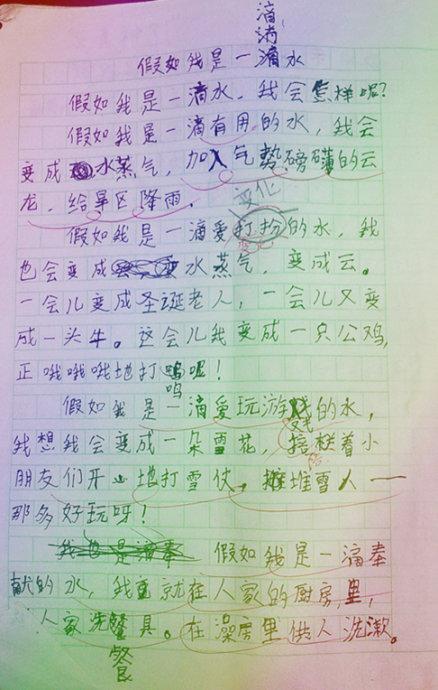 滴
滴
假如我是一滴水
假如我是一滴水,我会怎样呢?
假如我是一滴有用的水,我会
变成水蒸气,加入气势磅礴的云
龙,给旱区降雨。
变化
假如我是一滴爱打扮的水,我
也会变成水蒸气,变成云。
一会儿变成圣诞老人,一会儿又变
成一头牛。这会儿我变成一只公鸡,
正哦哦哦地打鸣呢!
鸣
假如我是一滴爱玩游戏的水,
戏
我想我会变成一朵雪花,陪着小
朋友们开心地打雪仗,堆雪人——
那多好玩呀!
假如我是一滴奉
献的水,我就在人家的厨房里,
人家洗餐具。在澡房里供人洗漱。
餐